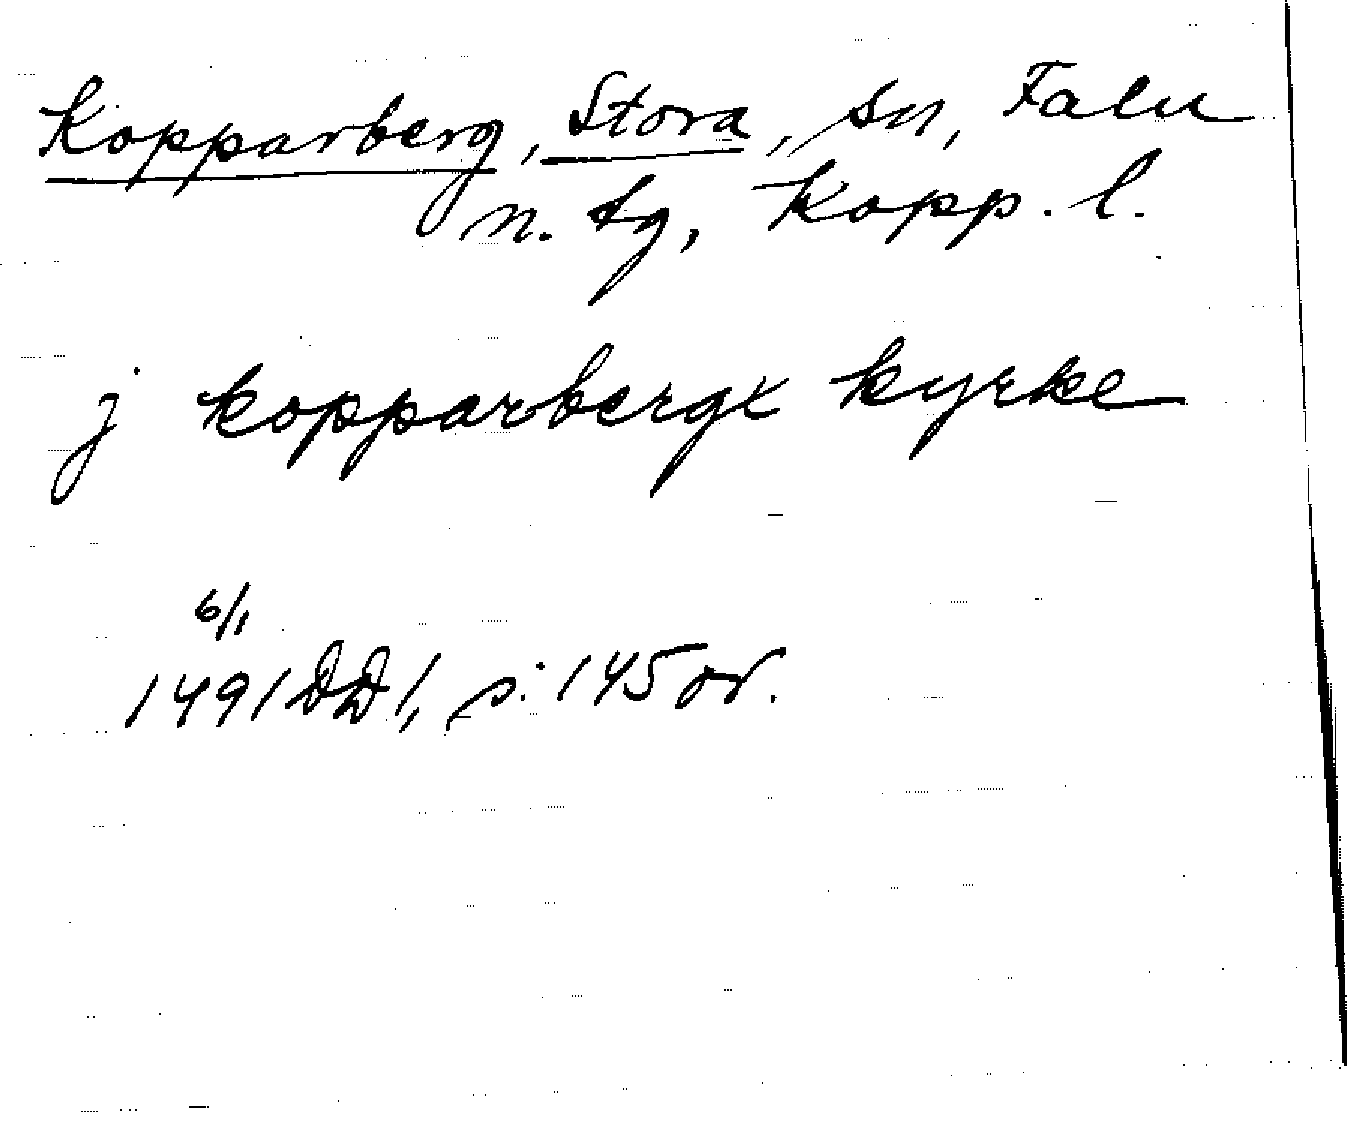 Kopparberg, Stora, sn, Falu
n. tg, Kopp. l.
j kopparbergx kyrke
6/1
1491 DD 1, s: 145 or.